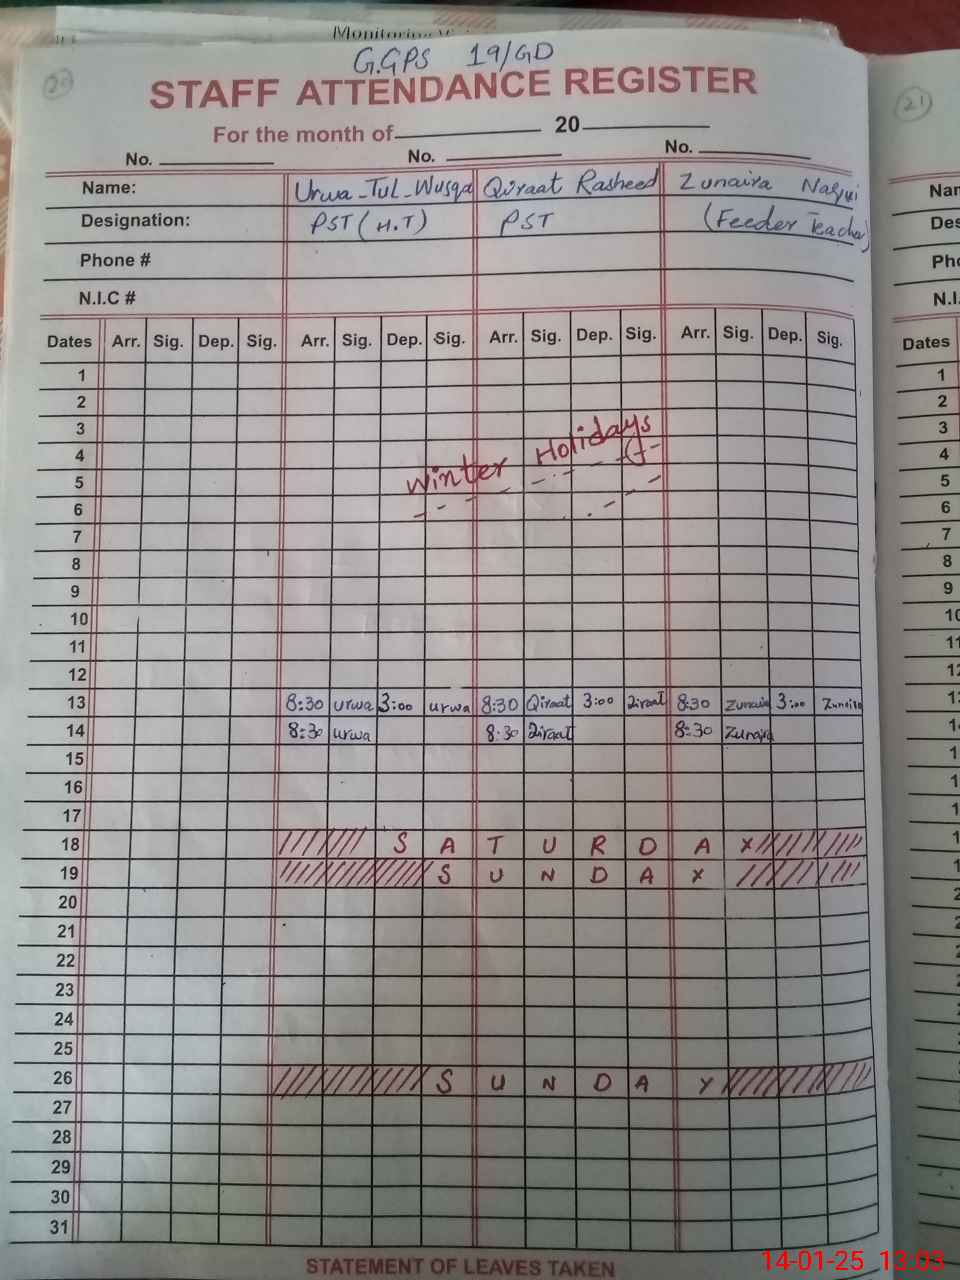 G.GPS 19/GD
20
STAFF ATTENDANCE REGISTER
21
For the month of 20
No. No. No.
Name: Urwa_Tul_Wusqa Qiraat Rasheed Zunaira Naqvi
Designation: PST (H.T) PST (Feeder Teacher)
Phone #
N.I.C #
Dates Arr. Sig. Dep. Sig. Arr. Sig. Dep. Sig. Arr. Sig. Dep. Sig. Arr. Sig. Dep. Sig. Dates
1 1
2 2
3 3
Winter Holidays
4 4
5 5
6 6
7 7
8 8
9 9
10
11
12
13 8:30 urwa 3:00 urwa 8:30 Qiraat 3:00 Qiraat 8:30 Zunaira 3:00 Zunaira
14 8:30 urwa 8:30 Qiraat 8:30 Zunaira
15
16
17
18 SATURDAY
19 SUNDAY
20
21
22
23
24
25
26 SUNDAY
27
28
29
30
31
STATEMENT OF LEAVES TAKEN
14-01-25 13:03